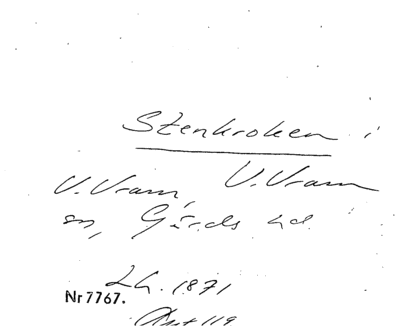 Stenkroken i
V. Vram, V. Vram
sn, Gärds hd.
Lh. 1871
Nr 7767.
119